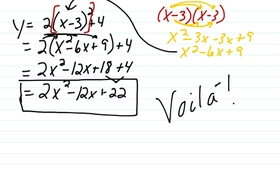 y = 2(x-3)²+4
= 2(x²-6x+9)+4
= 2x²-12x+18+4
= 2x²-12x+22
(x-3)(x-3)
x²-3x-3x+9
x²-6x+9
Voilà!